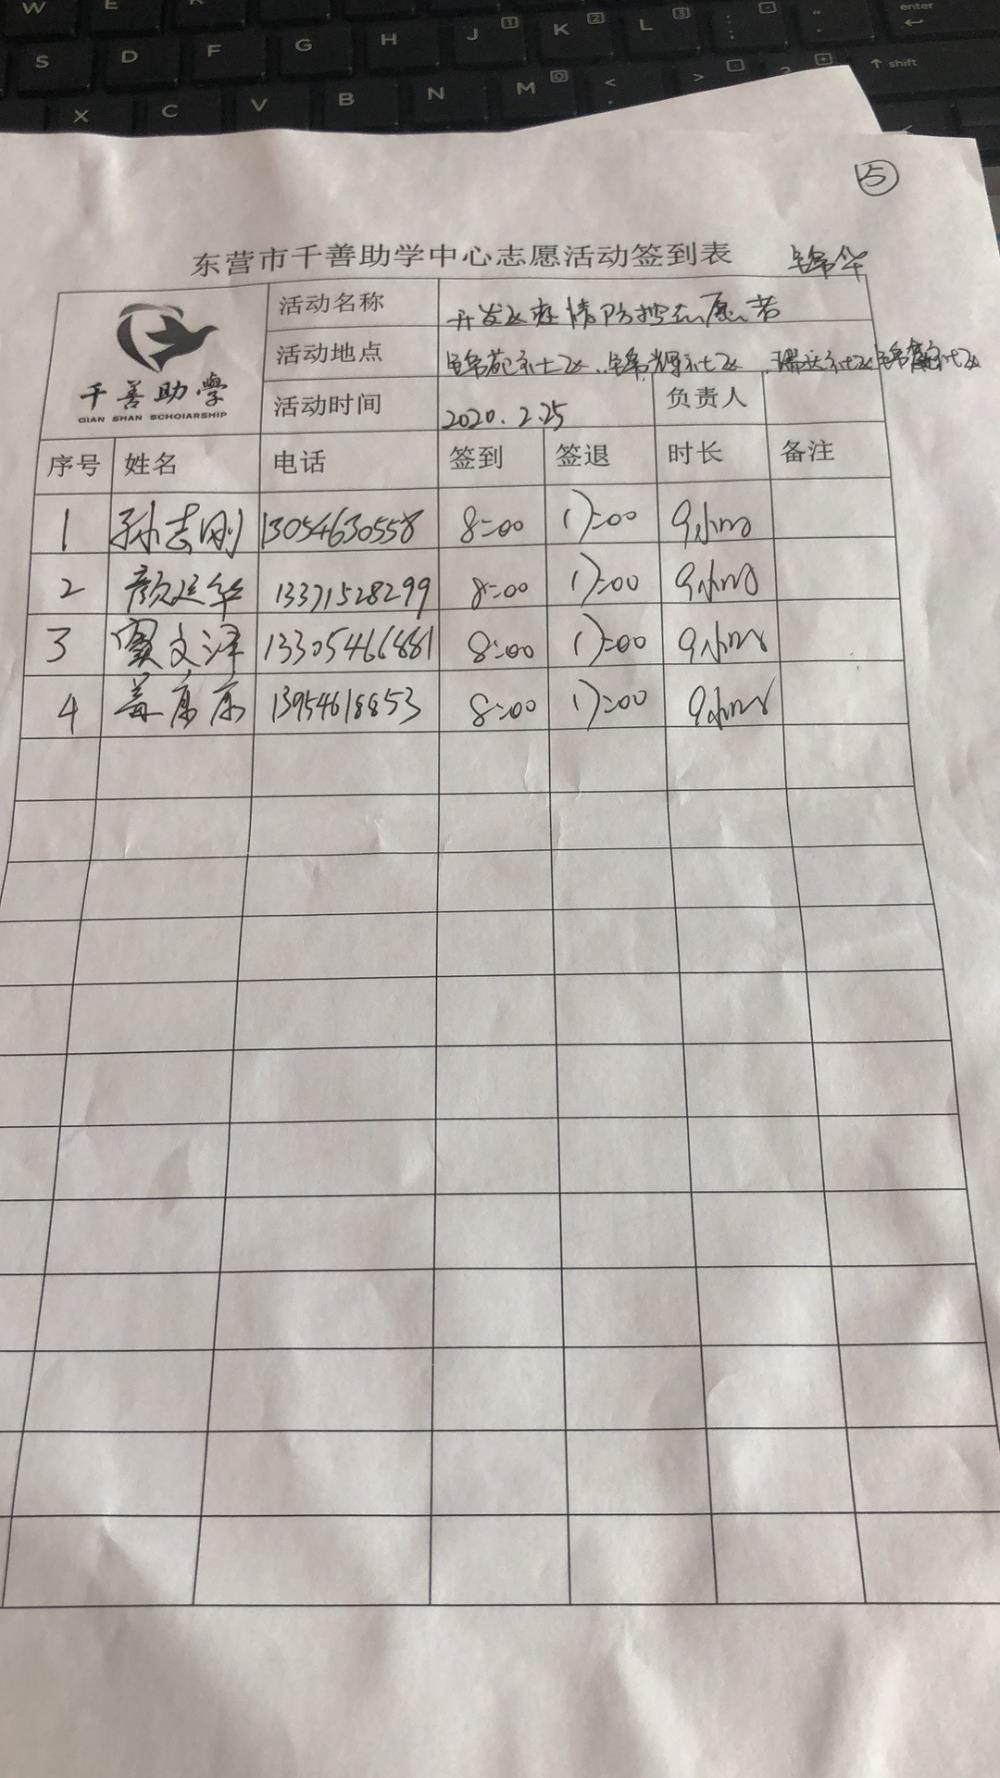 ⑤
东营市千善助学中心志愿活动签到表 锦华
千善助學
QIAN SHAN SCHOIARSHIP
活动名称 开发区疫情防控志愿者
活动地点 锦苑社区、锦辉社区、瑞达社区 锦社区
活动时间 2020.2.25 负责人
序号 姓名 电话 签到 签退 时长 备注
1 孙志刚 13054630558 8:00 17:00 9小时
2 颜廷华 13371528299 8:00 17:00 9小时
3 窦文泽 13305466881 8:00 17:00 9小时
4 盖康康 13954618853 8:00 17:00 9小时
W E R
S D F G H J 1 K 2 L 3 : ; " enter
X C V B N M 0 < > ? shift